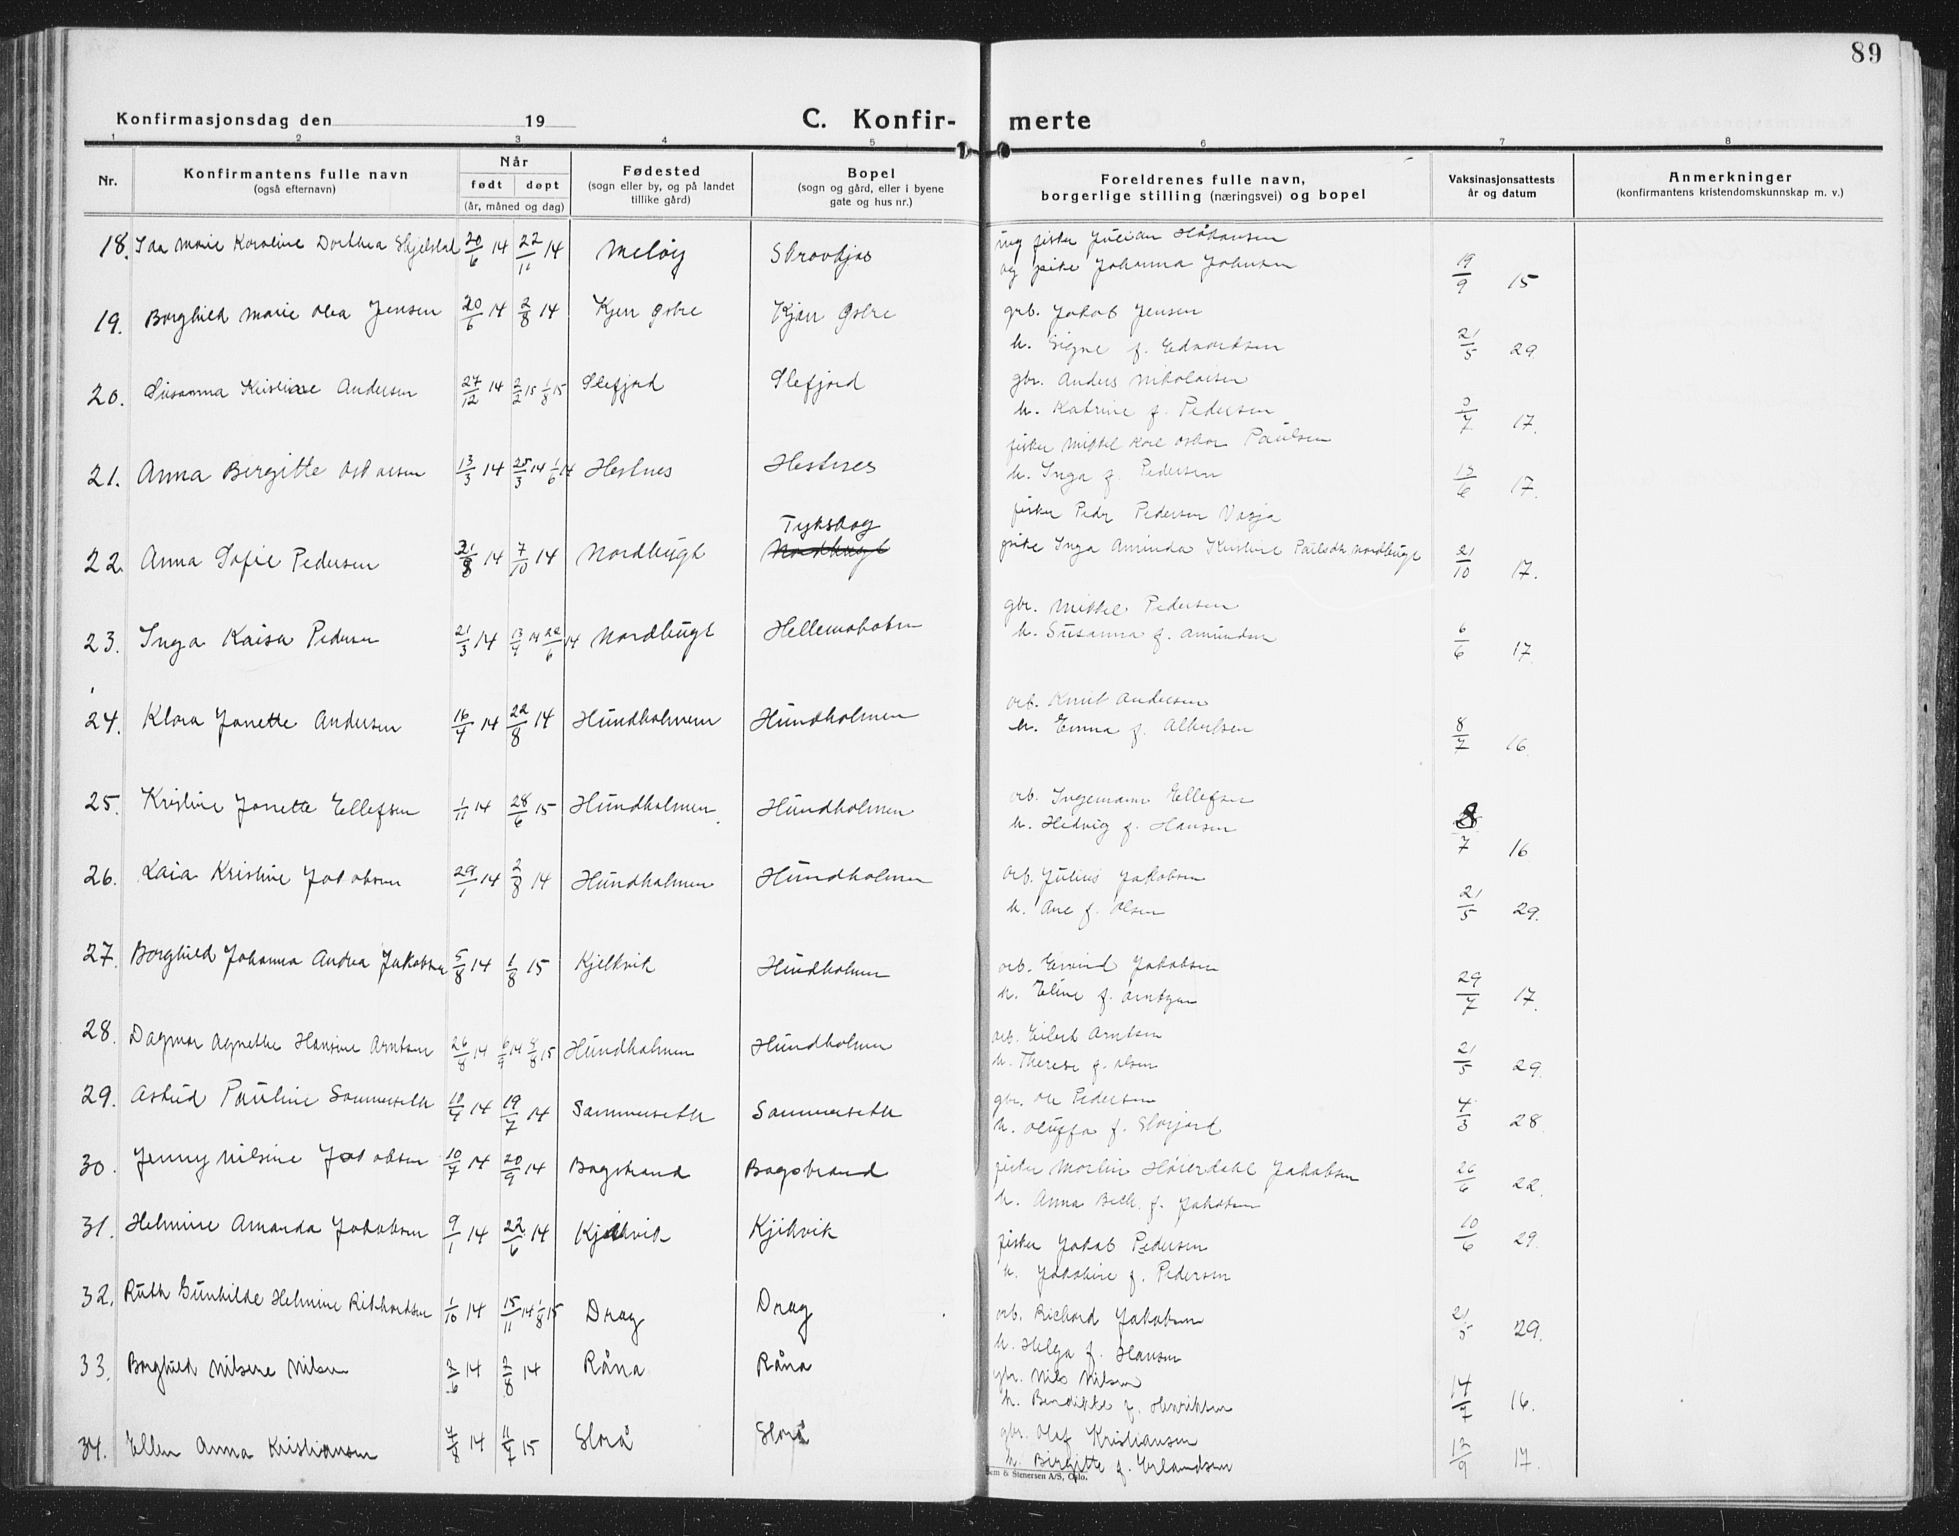 89
Konfirmasjonsdag den 19
C. Konfir- merte
1 2 3 4 5 6 7 8
Nr. Konfirmantens fulle navn (også efternavn) Når født døpt (år, måned og dag) Fødested (sogn eller by, og på landet tillike gård) Bopel (sogn og gård, eller i byene gate og hus nr.) Foreldrenes fulle navn, borgerlige stilling (næringsvei) og bopel Vaksinasjonsattests år og datum Anmerkninger (konfirmantens kristendomskunnskap m. v.)
18. Ida Marie Karoline Dorthea 20/6 14 22/11 14 Meløy
fisker Julian Håkansen
og pike Johanna Johnsen 19/9 15
19. Borghild Marie Olea Jensen 20/6 14 2/8 14 Kjær Østre Kjær Østre
grb. Jakob Jensen
h. Signe f. Edvardsen 21/5 29
20. Susanna Kristine Andersen 27/12 14 2/2 15 1/8 15 Slefjord Slefjord
gbr. Anders Nikolaisen
h. Katrine f. Pedersen 17.
21. Anna Birgitte Oskarsen 13/3 14 25/3 14 1/6 14 Hestnes Hestnes
fisker Mikkel Karl Oskar Paulsen
h. Inga f. Pedersen 15/6 17.
22. Anna Sofie Pedersen 14 7/10 14 Nordbugt Tykskog Nordbugt
fisker Peder Pedersen
pike Inga Aminda Kristine Paulsdtr Nordbugt 21/10 17.
23. Inga Kaisa Pedersen 21/3 14 13/4 14 22/6 14 Nordbugt Hellemobotn
gbr. Mikkel Pedersen
h. Susanna f. Amundsen 6/6 17.
24. Klara Janette Andersen 16/4 14 22/8 14 Hundholmen Hundholmen
arb. Knut Andersen
h. Emma f. Albertsen 8/7 16.
25. Kristine Janette Ellefsen 1/11 14 28/6 15 Hundholmen Hundholmen
arb. Ingemann Ellefsen
h. Hedvig f. Hansen 8/7 16
26. Laia Kristine Jakobsen 29/1 14 2/8 14 Hundholmen Hundholmen
arb. Julius Jakobsen
h. Ane f. Olsen 21/5 29.
27. Borghild Johanna Andrea Jakobsen 5/8 14 1/8 15 Kjelkvik Hundholmen
arb. Eivind Jakobsen
h. Eline f. Arntzen 29/7 17.
28. Dagmar Agnethe Hansine Arntsen 26/8 14 6/9 14 8/8 15 Hundholmen Hundholmen
arb. Eilert Arntsen
h. Therese f. Olsen 21/5 29.
29. Astrid Pauline Sommerseth 10/4 14 19/7 14 Sommerseth Sommerseth
gbr. Ole Pedersen
h. Oluffa f. Storjord 4/3 28.
30. Jenny Nilsine Jakobsen 10/7 14 20/9 14 Bogstrand Bogstrand
fisker Martin Høierdahl Jakobsen
h. Anna Bech. f. Jakobsen 26/6 22.
31. Helmine Amanda Jakobsen 9/1 14 22/6 14 Kjelkvik Kjelkvik
fisker Jakob Pedersen
h. Jakobine f. Pedersen 10/6 29.
32. Ruth Gunhilde Helmine Rikhardsen 1/10 14 15/11 14 1/8 15 Drag Drag
arb. Richard Jakobsen
h. Helga f. Hansen 21/5 29.
33. Borghild Nilsine Nilsen 2/6 14 2/8 14 Råna Råna
gbr. Nils Nilsen
h. Bendikke f. Henriksen 14/7 16.
34. Ellen Anna Kristiansen 7/8 14 11/7 15 Storå Storå
gbr. Olaf Kristiansen
h. Birgitte f. Erlandsen 12/9 17.
Sem & Stenersen A/S, Oslo.